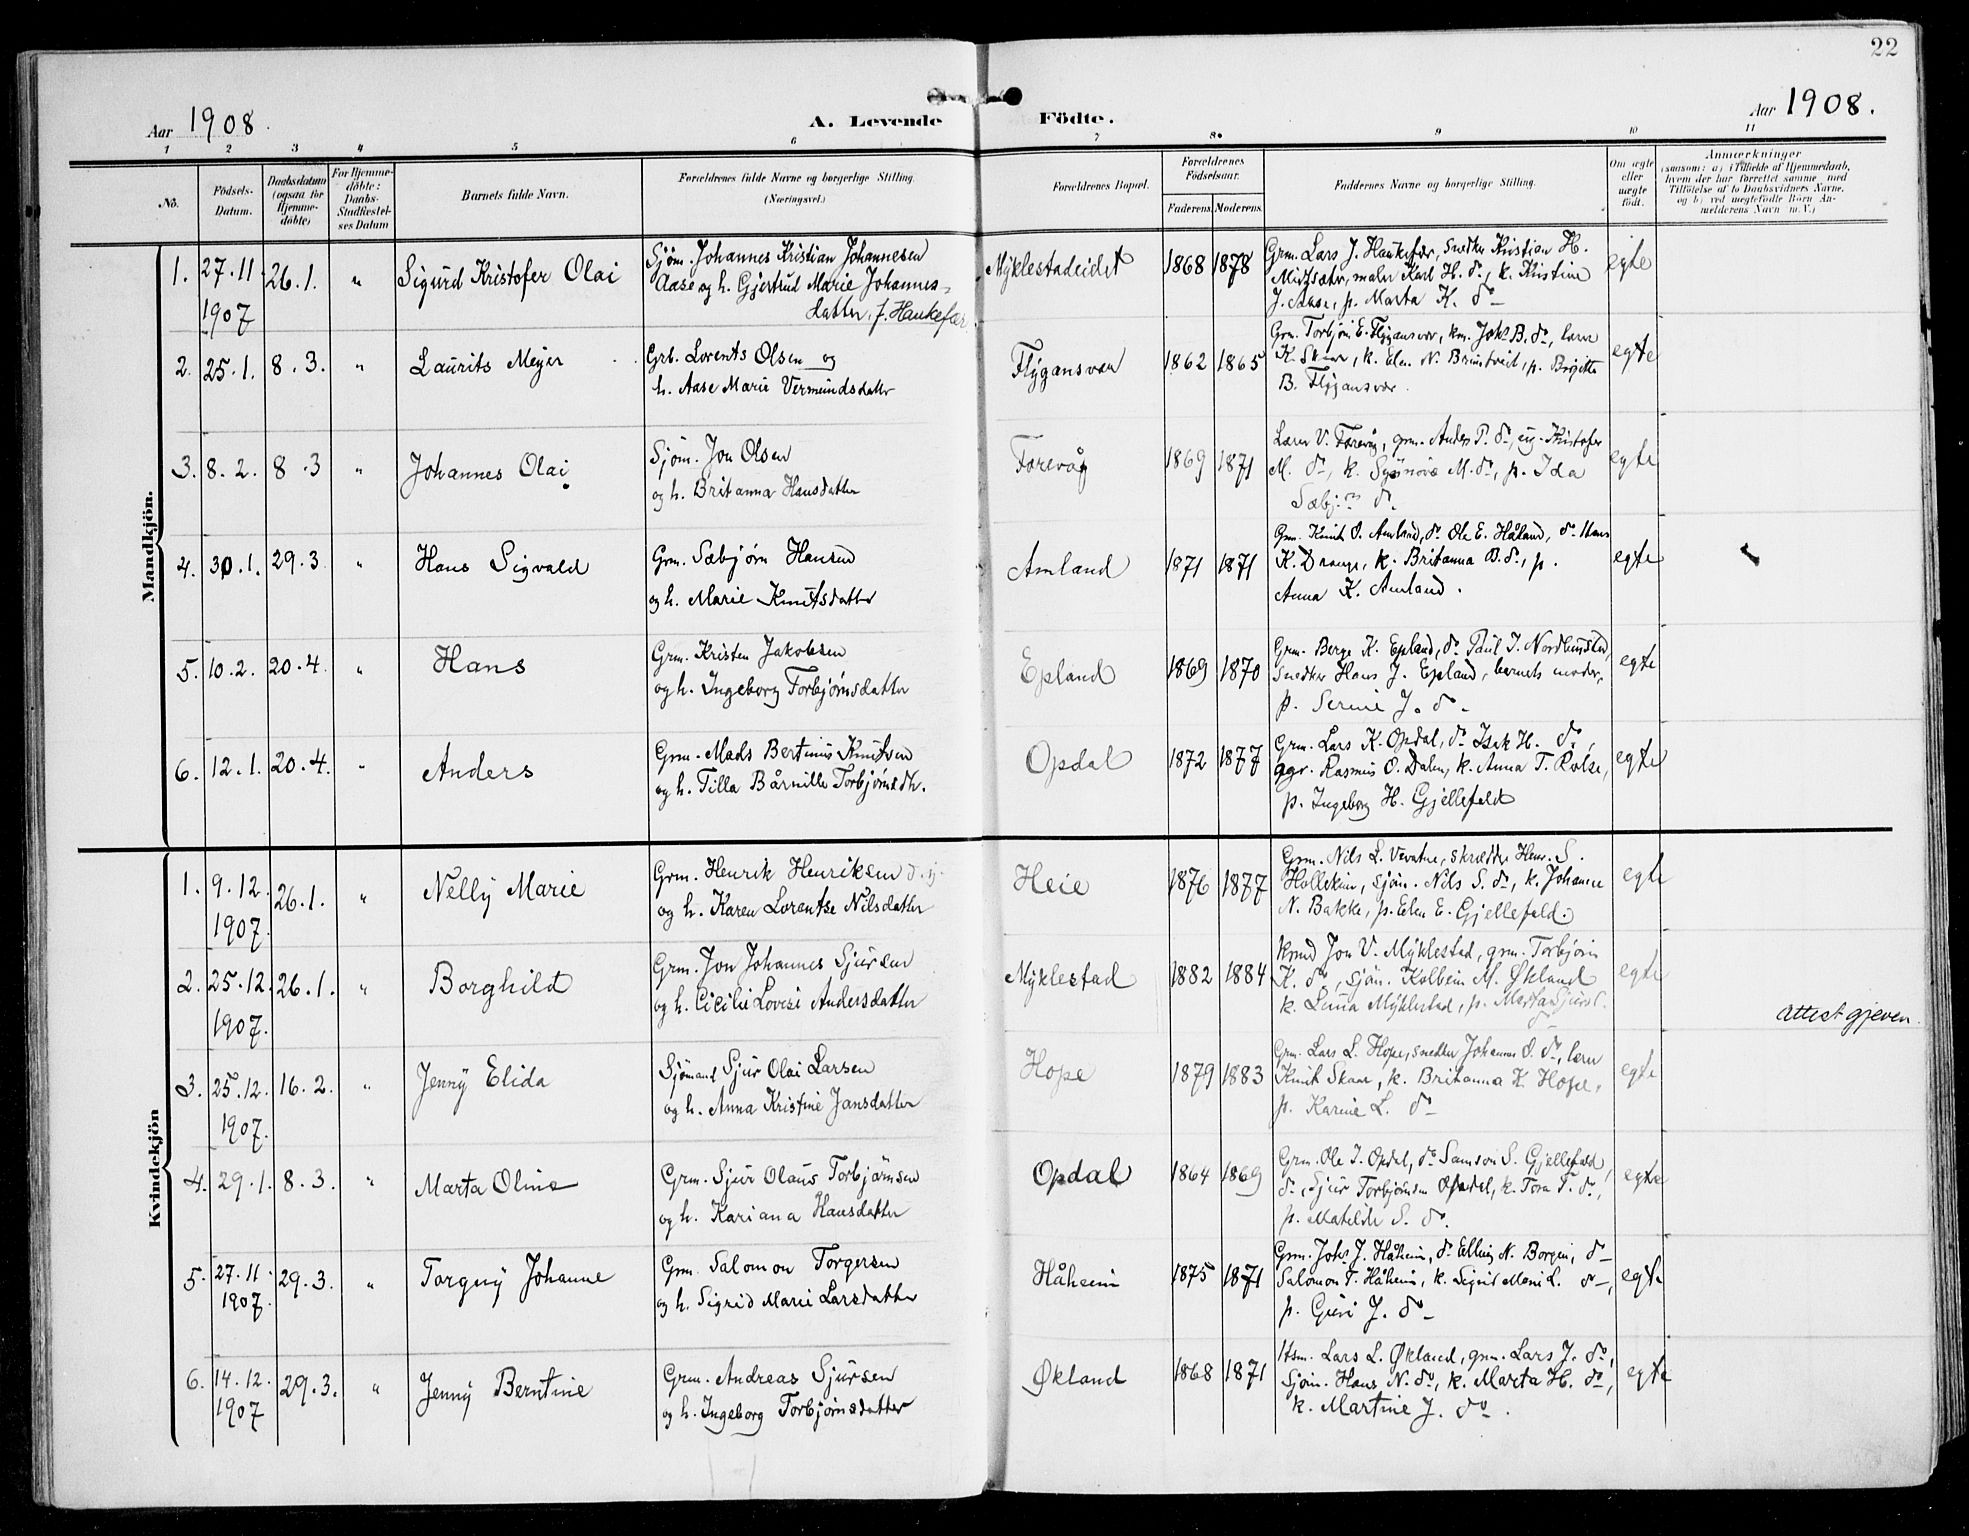 22
Aar 1908.
A. Levende Födte.
Aar 1908.
1 2 3 4 5 6 7 8. 9 10 11
No.
Födsels-Datum.
Daabsdatum (ogsaa for Hjemme-döbte)
For Hjemme-döbte: Daabs-Stadfæstel-ses Datum
Barnets fulde Navn.
Forældrenes fulde Navne og borgerlige Stilling.
(Næringsvei.)
Forældrenes Bopæl.
Forældrenes Födselsaar.
Faderens. Moderens.
Faddernes Navne og borgerlige Stilling.
Om ægte eller uægte födt.
Anmærkninger
(saasom: a) i Tilfælde af Hjemmedaab, hvem der har forrettet samme med Tilföielse af to Daabsvidners Navne, og b) ved uægtefödte Börn An-melderens Navn m. V.)
Mandkjön.
1. 27.11 1907 26.1. " Sigurd Kristofer Olai
Sjøm. Johannes Kristian Johannesen
Aase og h. Gjertrud Marie Johannes-
datter, f. Haukefær.
Myklestadeidet 1868 1878
Grm. Lars J. Haukefær, snedker Kristian H.
Midtsæter, maler Karl H. do, k. Kristine
J. Aase, p. Marta K. do
egte
2. 25.1. 8.3. " Laurits Meyer
Grb. Lorents Olsen og
h. Aase Marie Vermundsdatter
Flygansvær 1862 1865
Grm. Torbjørn E. Flygansvær, km. Johs B. do, lærer
K. Skaar, k. Elen N. Brimtveit, p. Brigitte
B. Flygansvær.
egte
3. 8.2. 8.3 " Johannes Olai
Sjøm. Jon Olsen
og h. Britanna Hansdatter
Forevåg 1869 1871
Lærer V. Forevåg, grm. Anders P. do, ug. Kristofer
M. do, k. Synnøve M. do, p. Ida
Sæbj. do.
egte
4. 30.1. 29.3 " Hans Sigvald
Grm. Sæbjørn Hansen
og h. Marie Knutsdatter
Amland 1871 1871
Grm. Knut O. Amland, do Ole E. Håland, do Hans
K. Drange, k. Britanna B. do, p.
Anna K. Amland.
egte
5. 10.2. 20.4. " Hans
Grm. Kristen Jakobsen
og h. Ingeborg Torbjørnsdatter
Epland 1869 1870
Grm. Berge K. Epland, do Paul I. Nordhuus,
snedker Hans J. Epland, barnets moder,
p. Serine J. do.
egte
6. 12.1. 20.4. " Anders
Grm. Mads Bertinius Knutsen
og h. Tilla Bårnille Torbjørnsdtr.
Opdal 1872 1877
Grm. Lars K. Opdal, do Isak H. do,
ggr. Rasmus O. Dalen, k. Anna T. Rolse,
p. Ingeborg H. Gjellefald
egte
Kvindekjön
1. 9.12. 1907 26.1. " Nelly Marie
Grm. Henrik Henriksen d.y.
og h. Karen Lorentse Nilsdatter
Heie 1876 1877
Grm. Nils L. Vevatne, skrædder Henr. S.
Hollekim, sjøm. Nils S. do, k. Johanne
N. Bakke, p. Elen E. Gjellefald.
egte
2. 25.12. 1907. 26.1. " Borghild
Grm. Jon Johannes Sjursen
og h. Cicilie Lovise Andersdatter
Myklestad 1882 1884
Knud Jon V. Myklestad, grm. Torbjørn
K. do, sjøm. Kolbein M. Økland
k. Lina Myklestad, p. Marta Sjurd.
do
egte
attest gjeven.
3. 25.12. 1907. 16.2. " Jenny Elida
Sjømand Sjur Olai Larsen
og h. Anna Kristine Jansdatter
Hope 1879 1883
Grm. Lars L. Hope, snedker Johannes O. do, lærer
Knut Skaar, k. Britanna K. Hope,
p. Karine L. do
egte
4. 29.1. 8.3. " Marta Oline
Grm. Sjur Olaus Torbjørnsen
og h. Kariana Hansdatter
Opdal 1864 1869
Grm. Ole I. Opdal, do Samson S. Gjellefald,
do, Sjur Torbjørnsen Opdal, k. Tora T. do,
p. Matilde S. do.
egte
5. 27.11. 1907. 29.3. " Torguy Johanne
Grm. Salomon Torgersen
og h. Sigrid Marie Larsdatter
Håheim 1875 1871
Grm. Johs J. Håheim, do Elling N. Borgen, do
Salomon T. Håheim, k. Sigrid Marie L. do,
p. Guri J. do
egte
6. 14.12. 1907 29.3. " Jenny Berntine
Grm. Andreas Sjursen
og h. Ingeborg Torbjørnsdatter
Økland 1868 1871
Hsm. Lars L. Økland, grm. Lars J. do,
Sjøm. Hans N. do, k. Marta H. do,
k. Martine J. do.
egte